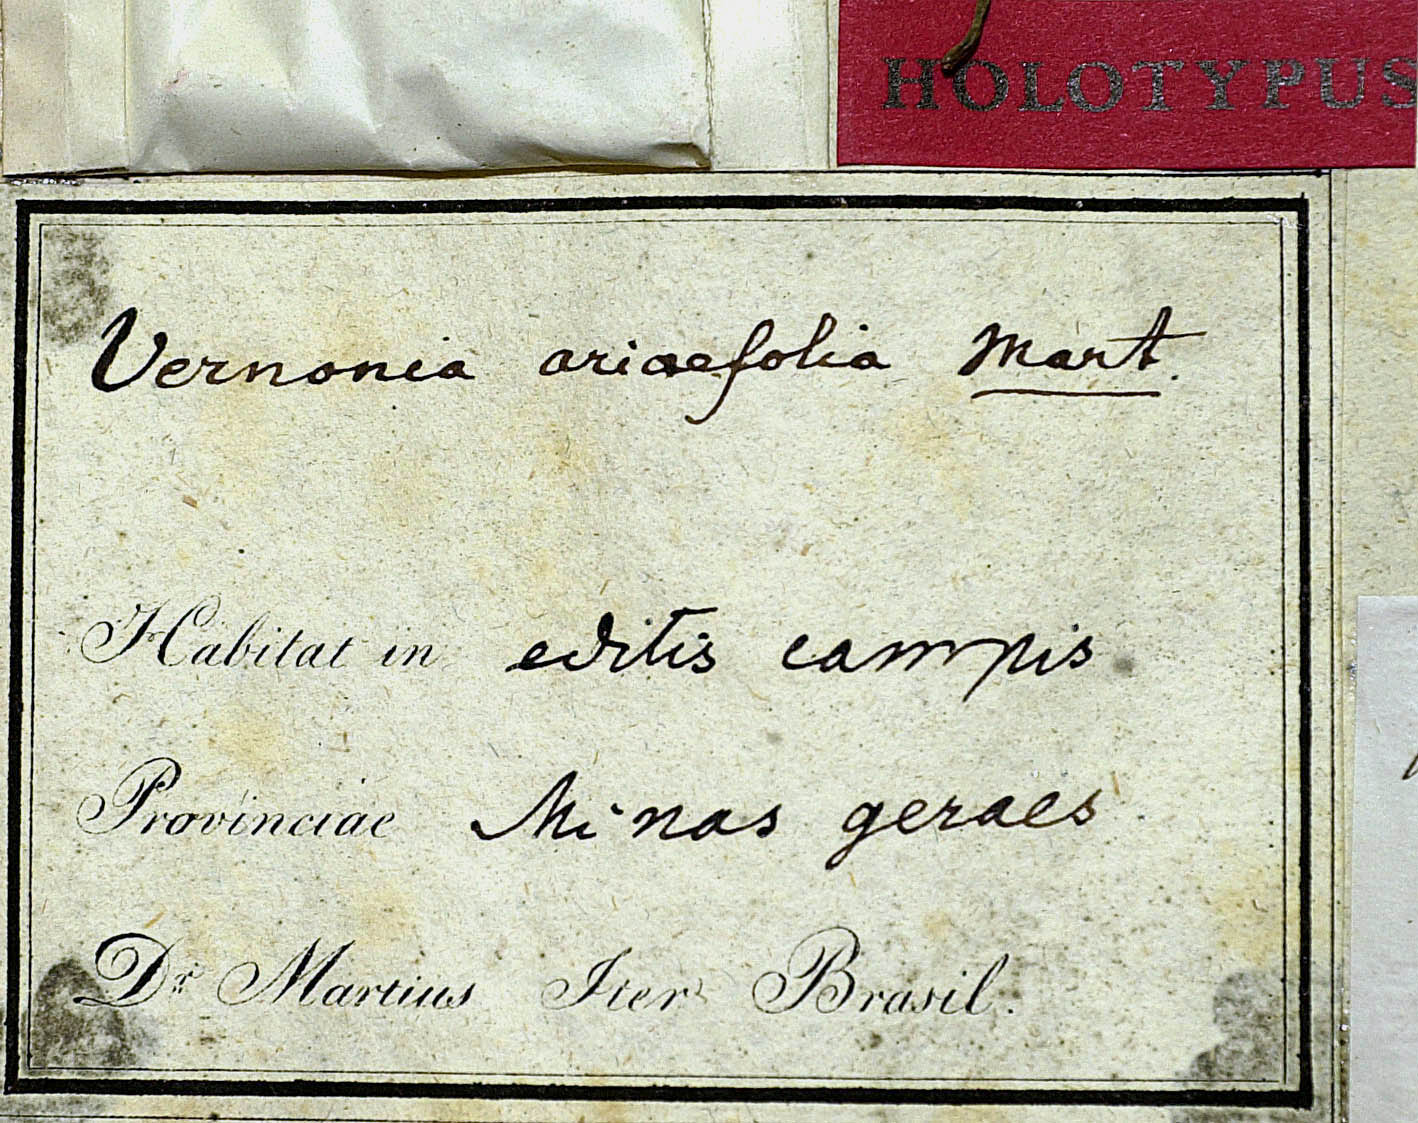 HOLOTYPUS
Vernonia ariaefolia Mart.
Habitat in editis campis
Provinciae Minas geraes
Dr. Martius Iter Brasil.